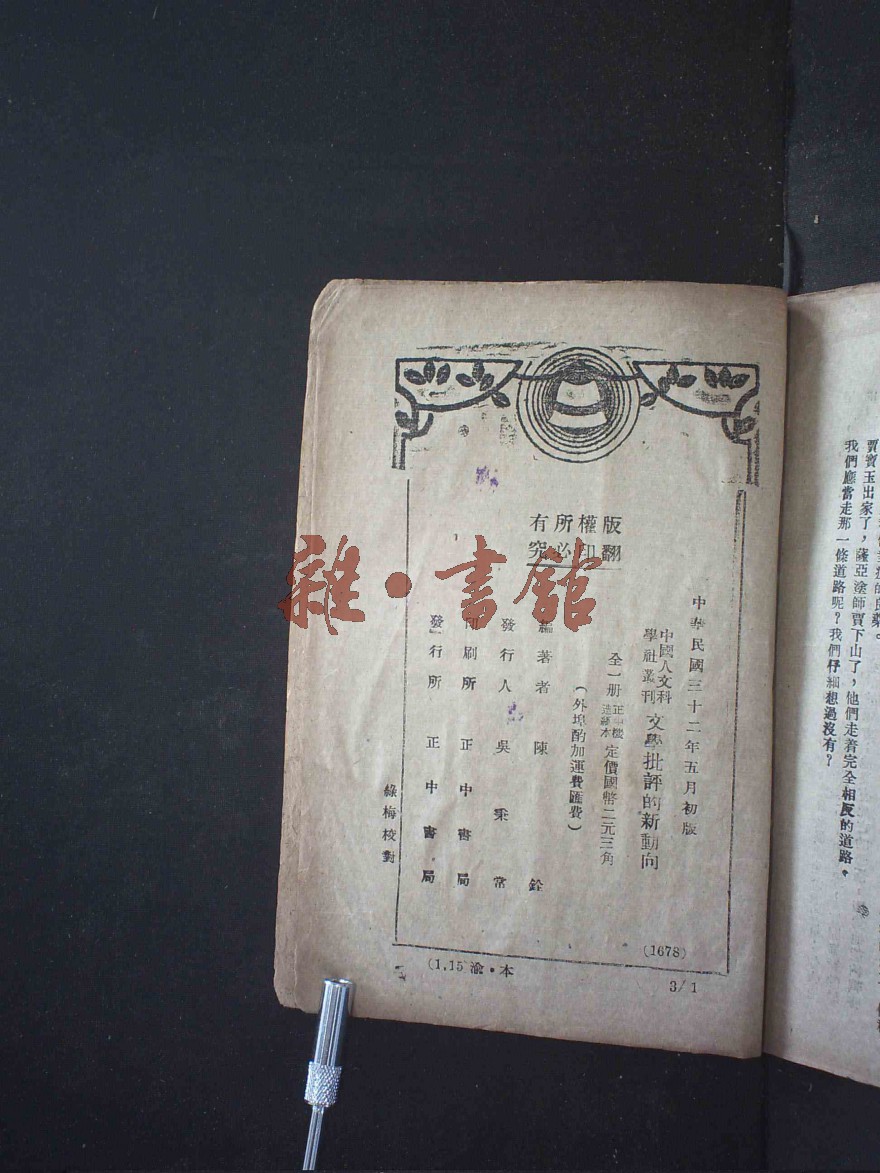 版權所有
翻印必究
中華民國三十二年五月初版
中國人文科
學社叢刊
文學批評的新動向
全一册
正中機
造紙本
定價國幣二元三角
(外埠酌加運費匯費)
編著者 陳 銓
發行人 吳秉常
印刷所 正中書局
發行所 正中書局
綠梅校對
(1678)
(1.15渝•本
3/1
賈寶玉出家了，薩亞塗師賈下山了，他們走着完全相反的道路。
我們應當走那一條道路呢？我們仔細想過沒有？
雜•書館